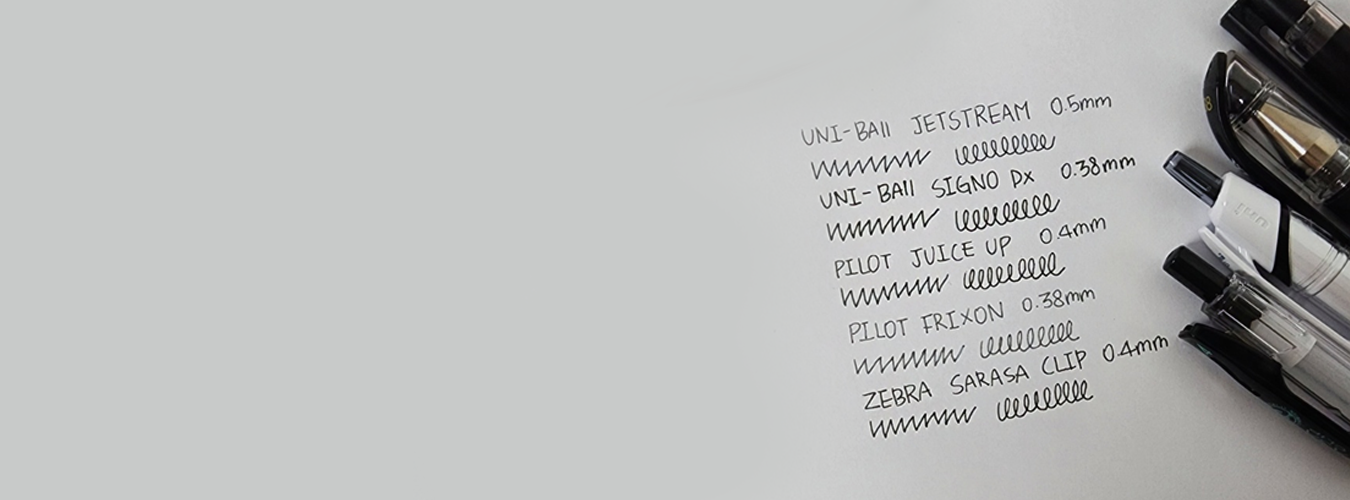 UNI-BAll JETSTREAM 0.5mm
UNI-BAll SIGNO DX 0.38mm
PILOT JUICE UP 0.4mm
PILOT FRIXON 0.38mm
ZEBRA SARASA CLIP 0.4mm